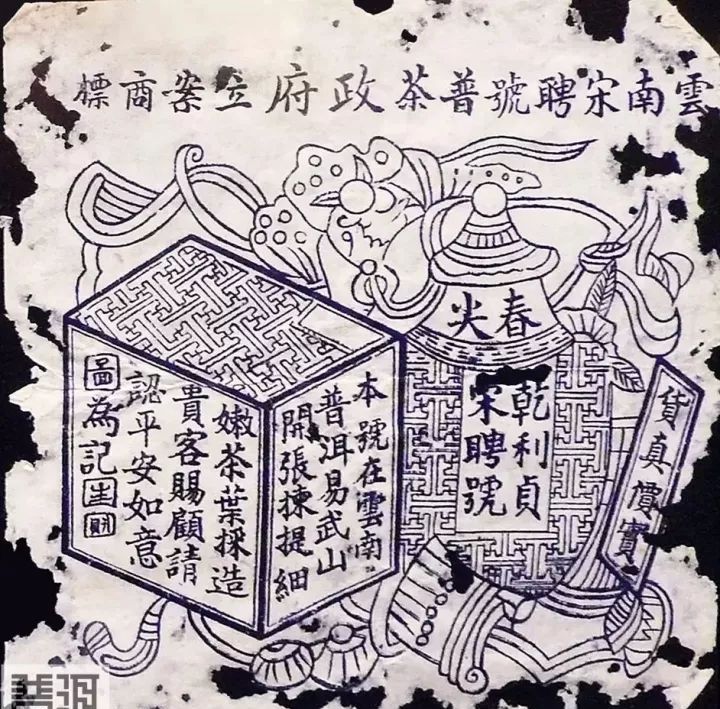 雲南宋聘號普茶政府立案商標
春尖
乾利貞
宋聘號
貨真價實
本號在雲南
普洱易武山
開張揀提細
嫩茶葉採造
貴客賜顧請
認平安如意
圖為記
生財